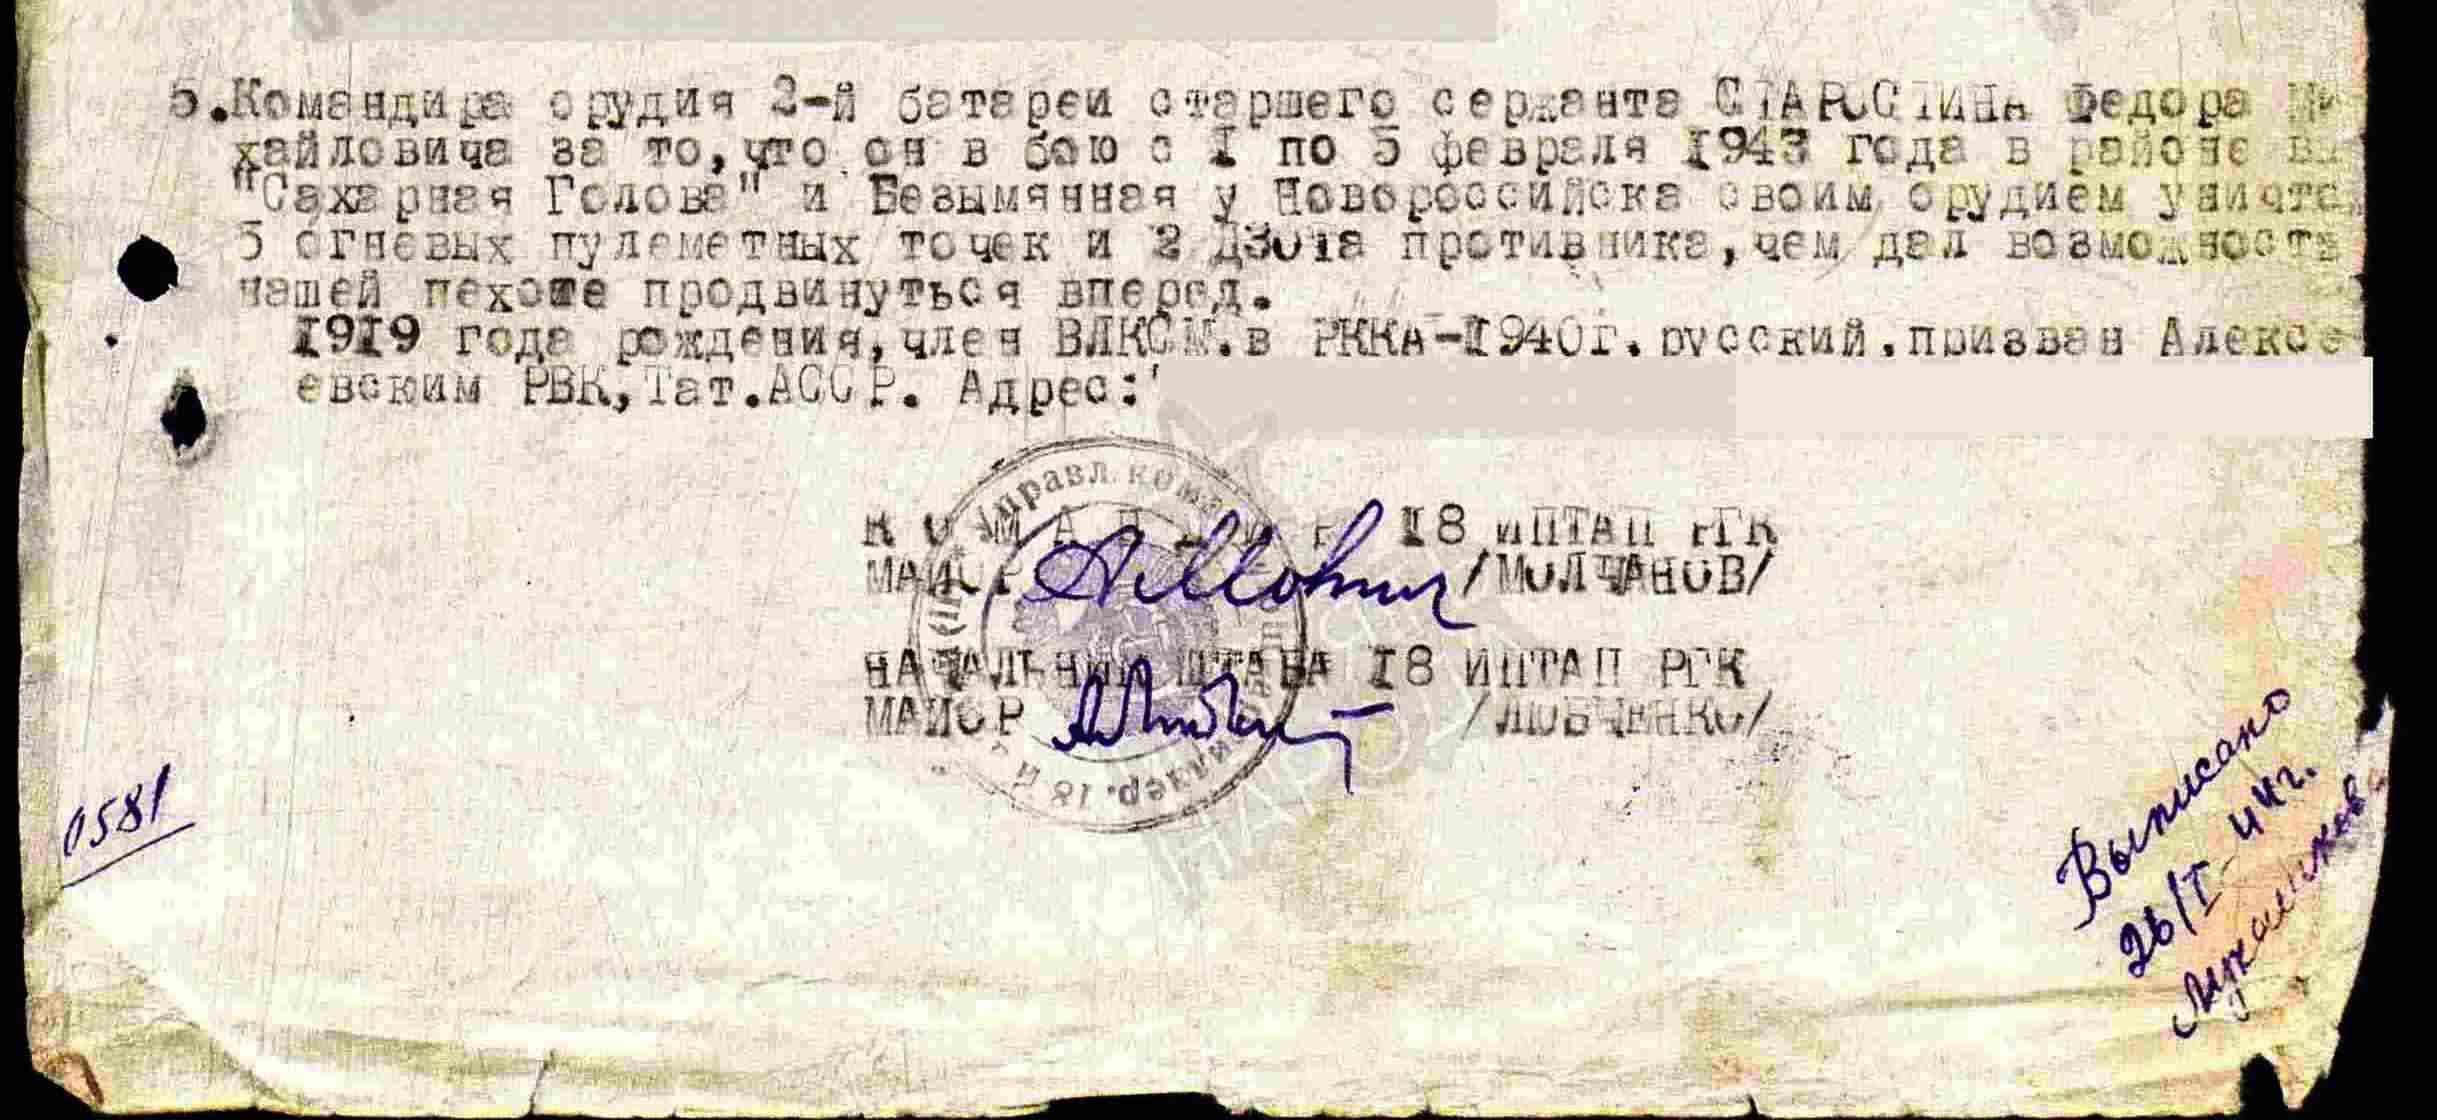 5.Командира орудия 2-й батареи старшего сержанта СТАРОСТИНА Федора Ми
хайловича за то,что он в бою с I по 5 февраля 1943 года в районе вы
"Сахарная Голова" и Безымянная у Новороссийска своим орудием уничто
5 огневых пулеметных точек и 2 ДЗОТа противника,чем дал возможность
нашей пехоте продвинуться вперед.
1919 года рождения,член ВЛКСМ.в РККА-1940г.русский.призван Алексе
евским РВК,Тат.АССР. Адрес:
Управл. ком
К О М А Н Д И Р 18 ИПТАП РГК
МАЙОР /МОЛЧАНОВ/
НАЧАЛЬНИК ШТАБА 18 ИПТАП РГК
МАЙОР /ЛЮБЧЕНКО/
0581
Выписано
26/I-44г.